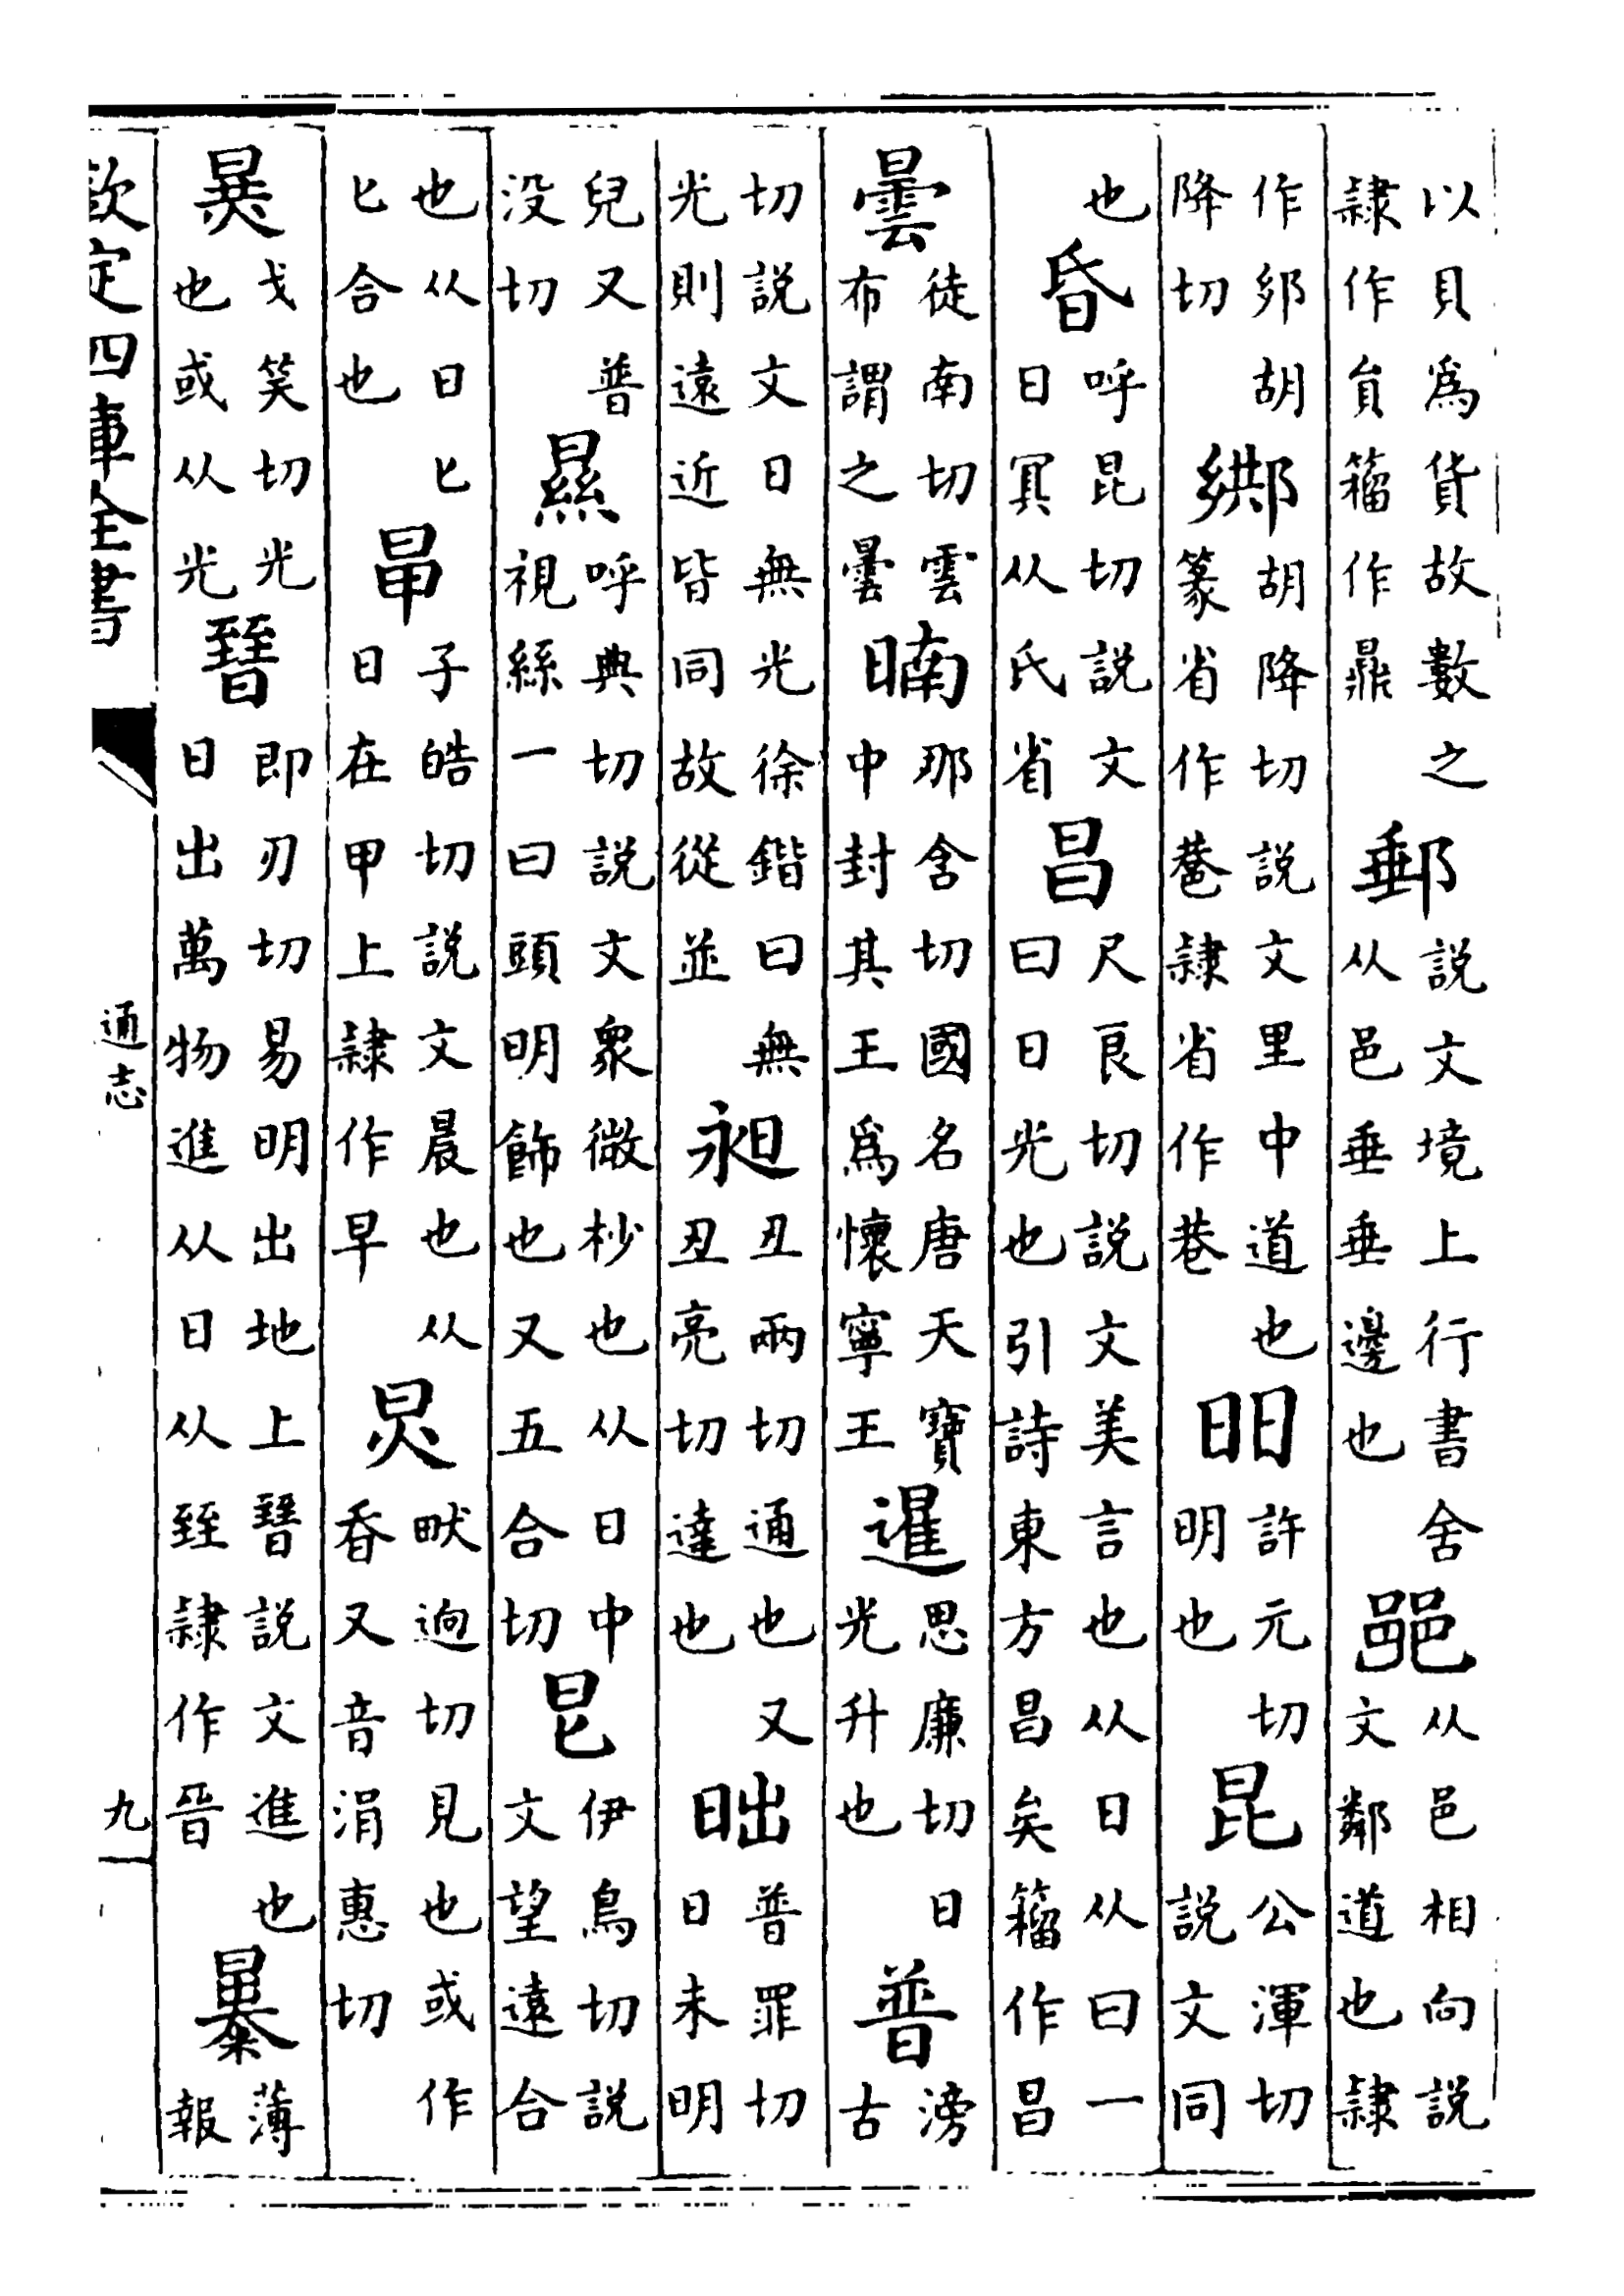 以貝爲貨故數之隸作貟籀作鼎郵説文境上行書舍从邑垂垂邊也从邑相向説文鄰道也隸
作邜胡降切𨞠胡降切説文里中道也篆省作𨜕隸省作巷昍許元切明也昆公渾切説文同
也昏呼昆切説文日冥从氏省昌尺良切説文文美言也从日从曰一曰日光也引詩東方昌矣籀作昌
曇徒南切雲布謂之曇暔那含切國名唐天寶中封其王爲懷寧王暹思廉切日光升也普滂古
切説文日無光徐鍇曰無光則遠近皆同故從並昶丑兩切通也又丑亮切達也昢普罪切日未明
皃又普没切㬎呼典切説文衆微杪也从日中視絲一曰頭明飾也又五合切㫐伊鳥切説文望遠合
也从日匕匕合也𣅊子皓切説文晨也从日在甲上隸作早炅畎迥切見也或作昋又音涓惠切
戈笑切光也或从光㬜即刃切易明出地上㬜説文進也日出萬物進从日从臸隸作晉㬥薄報
欽定四庫全書
通志
九